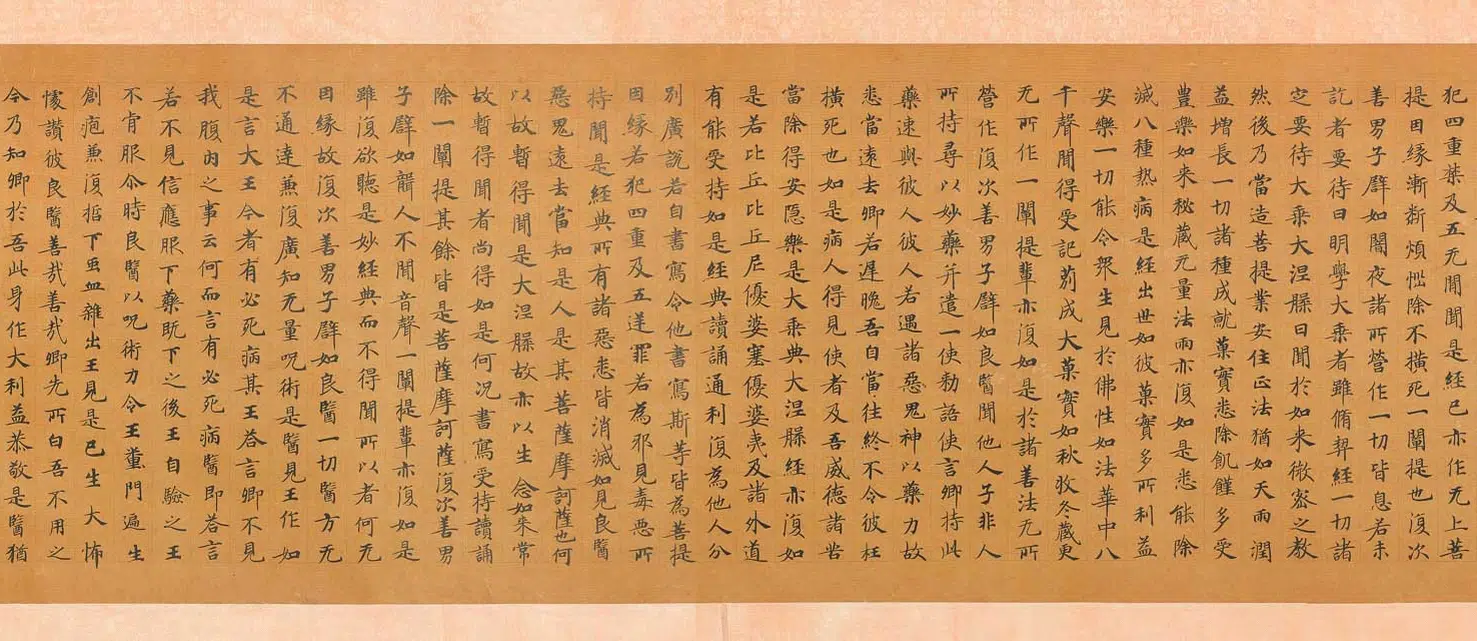 犯四重禁及五无間聞是經已亦作无上菩
提因緣漸斷煩惱除不横死一闡提也復次
善男子譬如闇夜諸所營作一切皆息若未
訖者要待日明學大乘者雖脩契經一切諸
定要待大乘大涅槃日聞於如来微密之教
然後乃當造菩提業安住正法猶如天雨潤
益增長一切諸種成就菓實悉除飢饉多受
豊樂如来秘蔵无量法雨亦復如是悉能除
滅八種热病是經出世如彼菓實多所利益
安樂一切能令衆生見於佛性如法華中八
千聲聞得受記莂成大菓實如秋收冬藏更
无所作一闡提輩亦復如是於諸善法无所
營作復次善男子譬如良醫聞他人子非人
所持尋以妙藥并遣一使勅語使言卿持此
藥速與彼人彼人若遇諸惡鬼神以藥力故
悉當遠去卿若遲晚吾自當往終不令彼枉
横死也如是病人得見使者及吾威德諸苦
當除得安隱樂是大乘典大涅槃經亦復如
是若比丘比丘尼優婆塞優婆夷及諸外道
有能受持如是經典讀誦通利復為他人分
別廣說若自書寫令他書寫斯等皆為菩提
因緣若犯四重及五逆罪若為邪見毒惡所
持聞是經典所有諸惡悉皆消滅如見良醫
惡鬼遠去當知是人是其菩薩摩訶薩也何
以故暫得聞是大涅槃故亦以生念如来常
故暫得聞者尚得如是何況書寫受持讀誦
除一闡提其餘皆是菩薩摩訶薩復次善男
子譬如聾人不聞音聲一闡提輩亦復如是
雖復欲聽是妙經典而不得聞所以者何无
因縁故復次善男子譬如良醫一切醫方无
不通達兼復廣知无量呪術是醫見王作如
是言大王今者有必死病其王荅言卿不見
我腹內之事云何而言有必死病醫即荅言
若不見信應服下藥既下之後王自驗之王
不肯服尒時良醫以呪術力令王糞門遍生
創疱兼復㿃下虫血雜出王見是已生大怖
懅讚彼良醫善㢤善㢤卿先所白吾不用之
今乃知卿於吾此身作大利益恭敬是醫猶